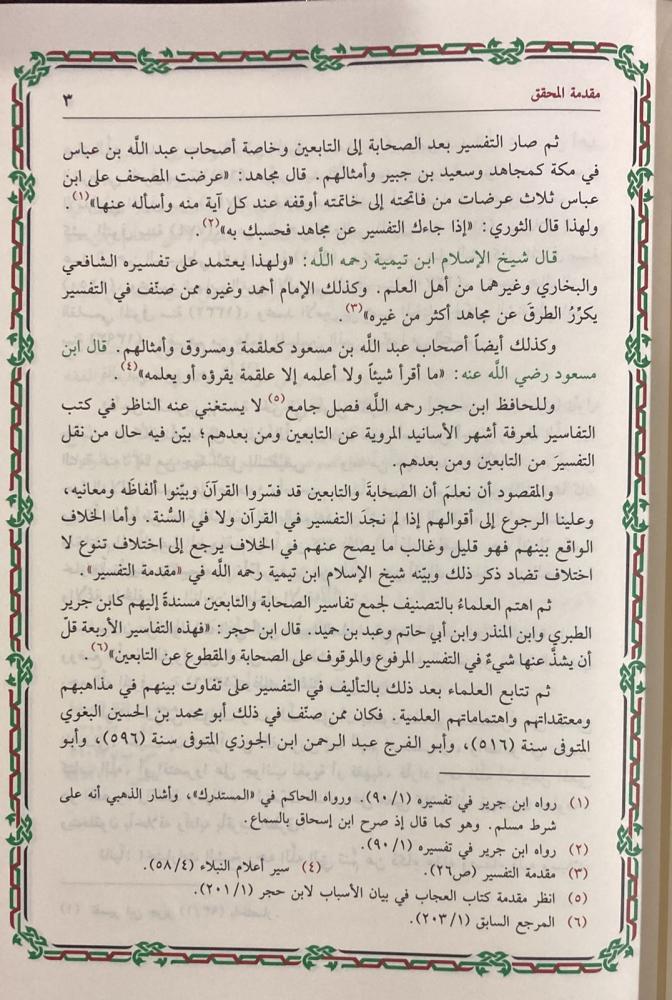 مقدمة المحقق
٣
ثم صار التفسير بعد الصحابة إلى التابعين وخاصة أصحاب عبد اللَّه بن عباس
في مكة كمجاهد وسعيد بن جبير وأمثالهم. قال مجاهد: «عرضت المصحف على ابن
عباس ثلاث عرضات من فاتحته إلى خاتمته أوقفه عند كل آية منه وأسأله عنها»(١).
ولهذا قال الثوري: «إذا جاءك التفسير عن مجاهد فحسبك به»(٢).
قال شيخ الإسلام ابن تيمية رحمه اللَّه: «ولهذا يعتمد على تفسيره الشافعي
والبخاري وغيرهما من أهل العلم. وكذلك الإمام أحمد وغيره ممن صنّف في التفسير
يكرِّرُ الطرقَ عن مجاهد أكثر من غيره»(٣).
وكذلك أيضاً أصحاب عبد اللَّه بن مسعود كعلقمة ومسروق وأمثالهم. قال ابن
مسعود رضي اللَّه عنه: «ما أقرأ شيئاً ولا أعلمه إلا علقمة يقرؤه أو يعلمه»(٤).
وللحافظ ابن حجر رحمه اللَّه فصل جامع(٥) لا يستغني عنه الناظر في كتب
التفاسير لمعرفة أشهر الأسانيد المروية عن التابعين ومن بعدهم؛ بيّن فيه حال من نقل
التفسيرَ من التابعين ومن بعدهم.
والمقصود أن نعلمَ أن الصحابةَ والتابعين قد فسّروا القرآنَ وبيّنوا ألفاظَه ومعانيه،
وعلينا الرجوع إلى أقوالهم إذا لم نجدَ التفسير في القرآن ولا في السُّنة. وأما الخلاف
الواقع بينهم فهو قليل وغالب ما يصح عنهم في الخلاف يرجع إلى اختلاف تنوع لا
اختلاف تضاد ذكر ذلك وبيّنه شيخ الإسلام ابن تيمية رحمه اللَّه في «مقدمة التفسير».
ثم اهتم العلماءُ بالتصنيف لجمع تفاسير الصحابة والتابعين مسندةً إليهم كابن جرير
الطبري وابن المنذر وابن أبي حاتم وعبد بن حميد. قال ابن حجر: «فهذه التفاسير الأربعة قلّ
أن يشذَّ عنها شيءٌ في التفسير المرفوع والموقوف على الصحابة والمقطوع عن التابعين»(٦).
ثم تتابع العلماء بعد ذلك بالتأليف في التفسير على تفاوت بينهم في مذاهبهم
ومعتقداتهم واهتماماتهم العلمية. فكان ممن صنّف في ذلك أبو محمد بن الحسين البغوي
المتوفى سنة (٥١٦)، وأبو الفرج عبد الرحمن ابن الجوزي المتوفى سنة (٥٩٦)، وأبو
(١) رواه ابن جرير في تفسيره (٩٠/١). ورواه الحاكم في «المستدرك»، وأشار الذهبي أنه على
شرط مسلم. وهو كما قال إذ صرح ابن إسحاق بالسماع.
(٢) رواه ابن جرير في تفسيره (٩٠/١).
(٣) مقدمة التفسير (ص٢٦). (٤) سير أعلام النبلاء (٥٨/٤).
(٥) انظر مقدمة كتاب العجاب في بيان الأسباب لابن حجر (٢٠١/١).
(٦) المرجع السابق (٢٠٣/١).